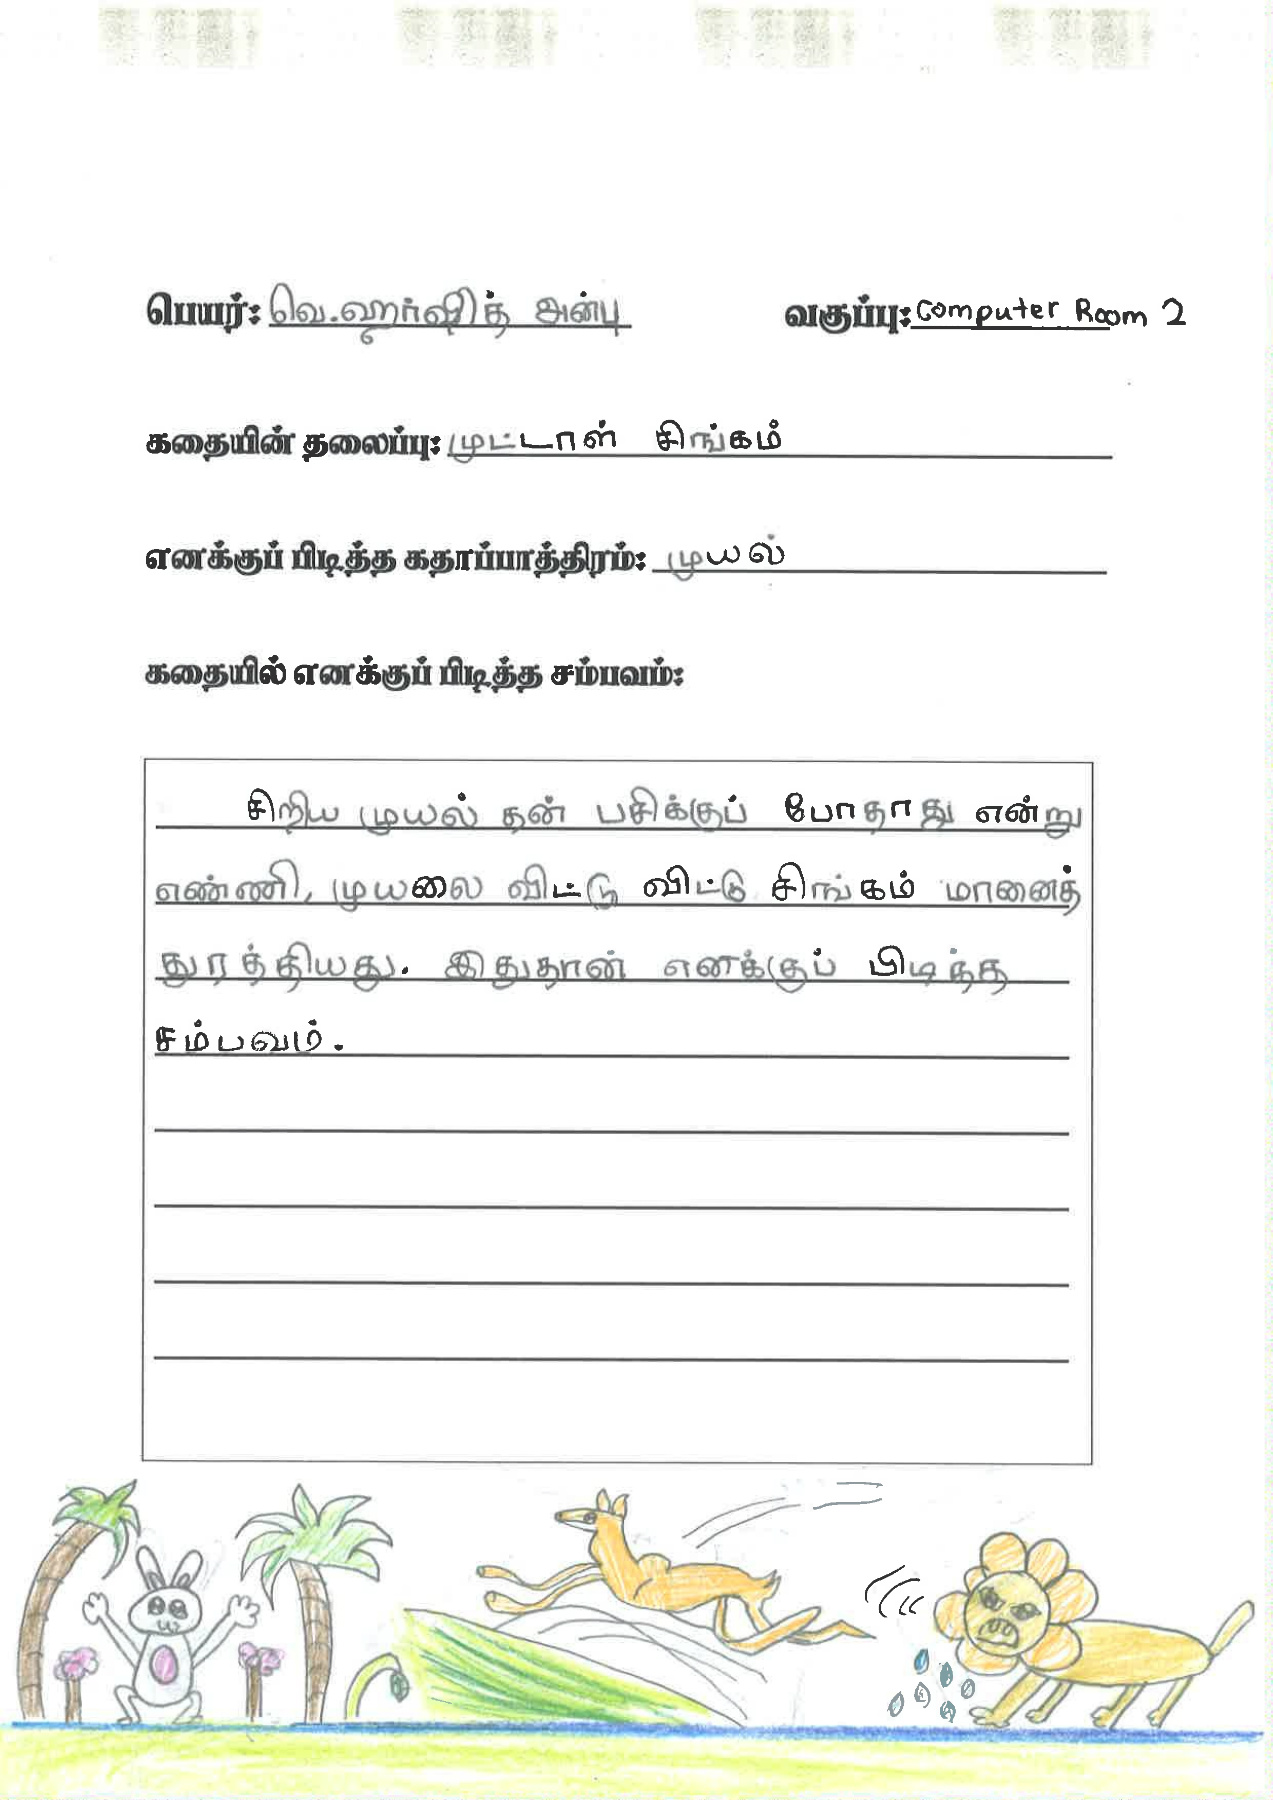 பெயர்: வெ.ஹர்ஷித் அன்பு வகுப்பு: Computer Room 2
கதையின் தலைப்பு: முட்டாள் சிங்கம்
எனக்குப் பிடித்த கதாப்பாத்திரம்: முயல்
கதையில் எனக்குப் பிடித்த சம்பவம்:
சிறிய முயல் தன் பசிக்குப் போதாது என்று
எண்ணி, முயலை விட்டு விட்டு சிங்கம் மானைத்
துரத்தியது. இதுதான் எனக்குப் பிடித்த
சம்பவம்.